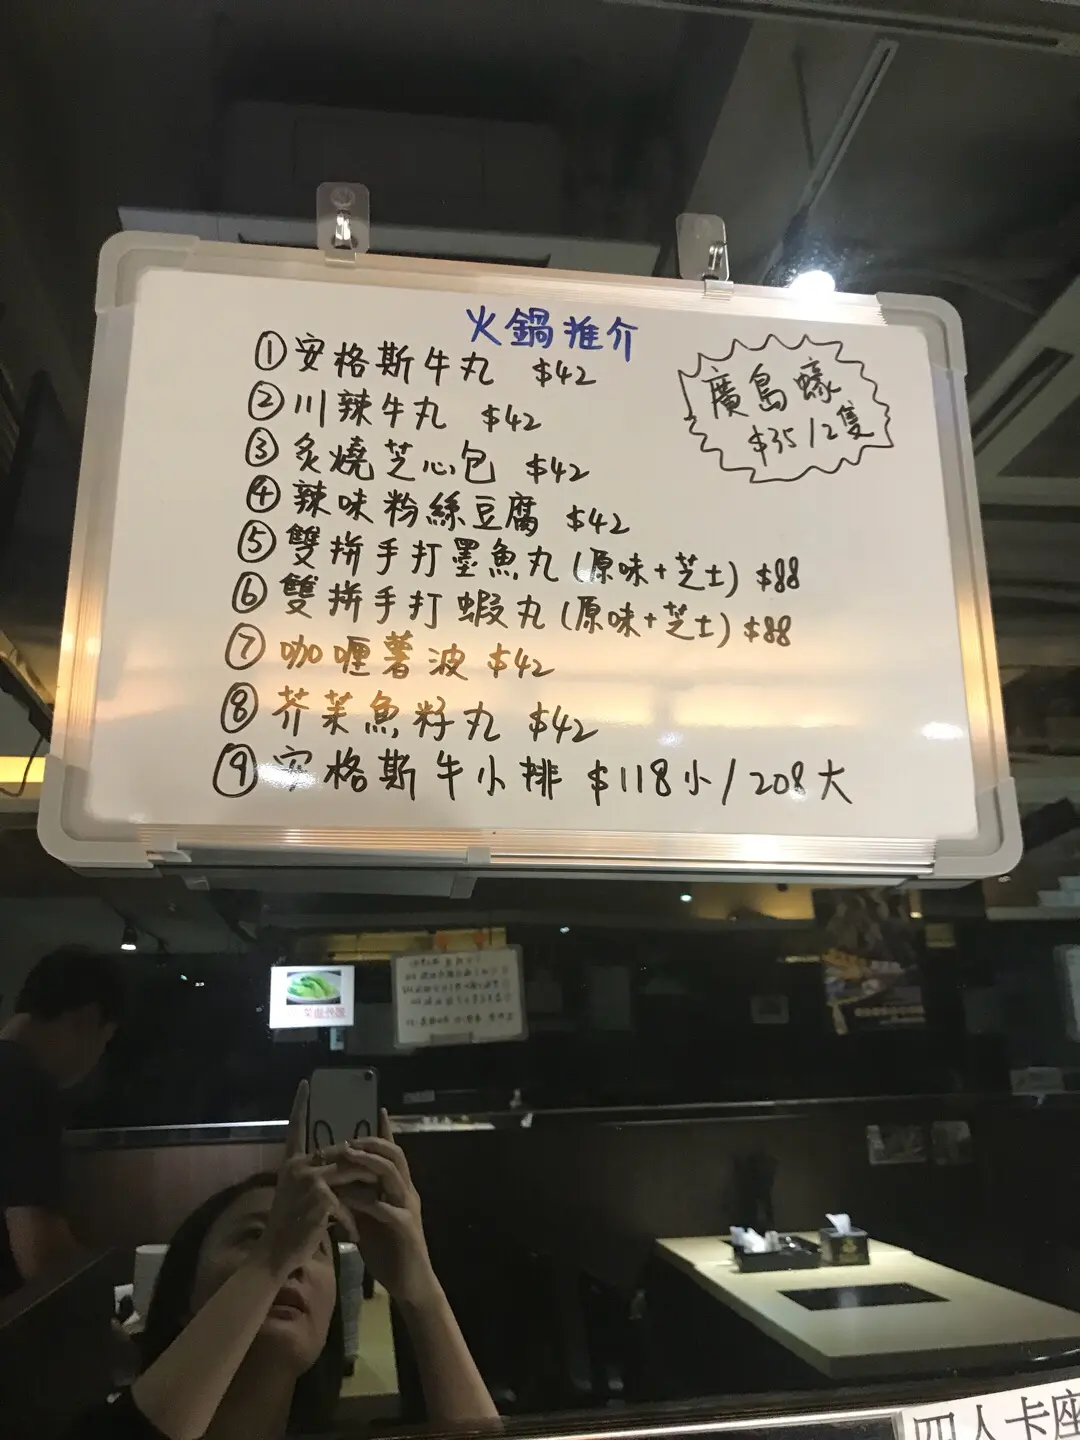 火鍋推介
①安格斯牛丸 $42
②川辣牛丸 $42
③炙燒芝心包 $42
④辣味粉絲豆腐 $42
⑤雙拼手打墨魚丸(原味+芝士) $88
⑥雙拼手打蝦丸(原味+芝士) $88
⑦咖喱薯波 $42
⑧芥茉魚籽丸 $42
⑨安格斯牛小排 $118小/208大
廣島蠔
$35/2隻
四人卡座